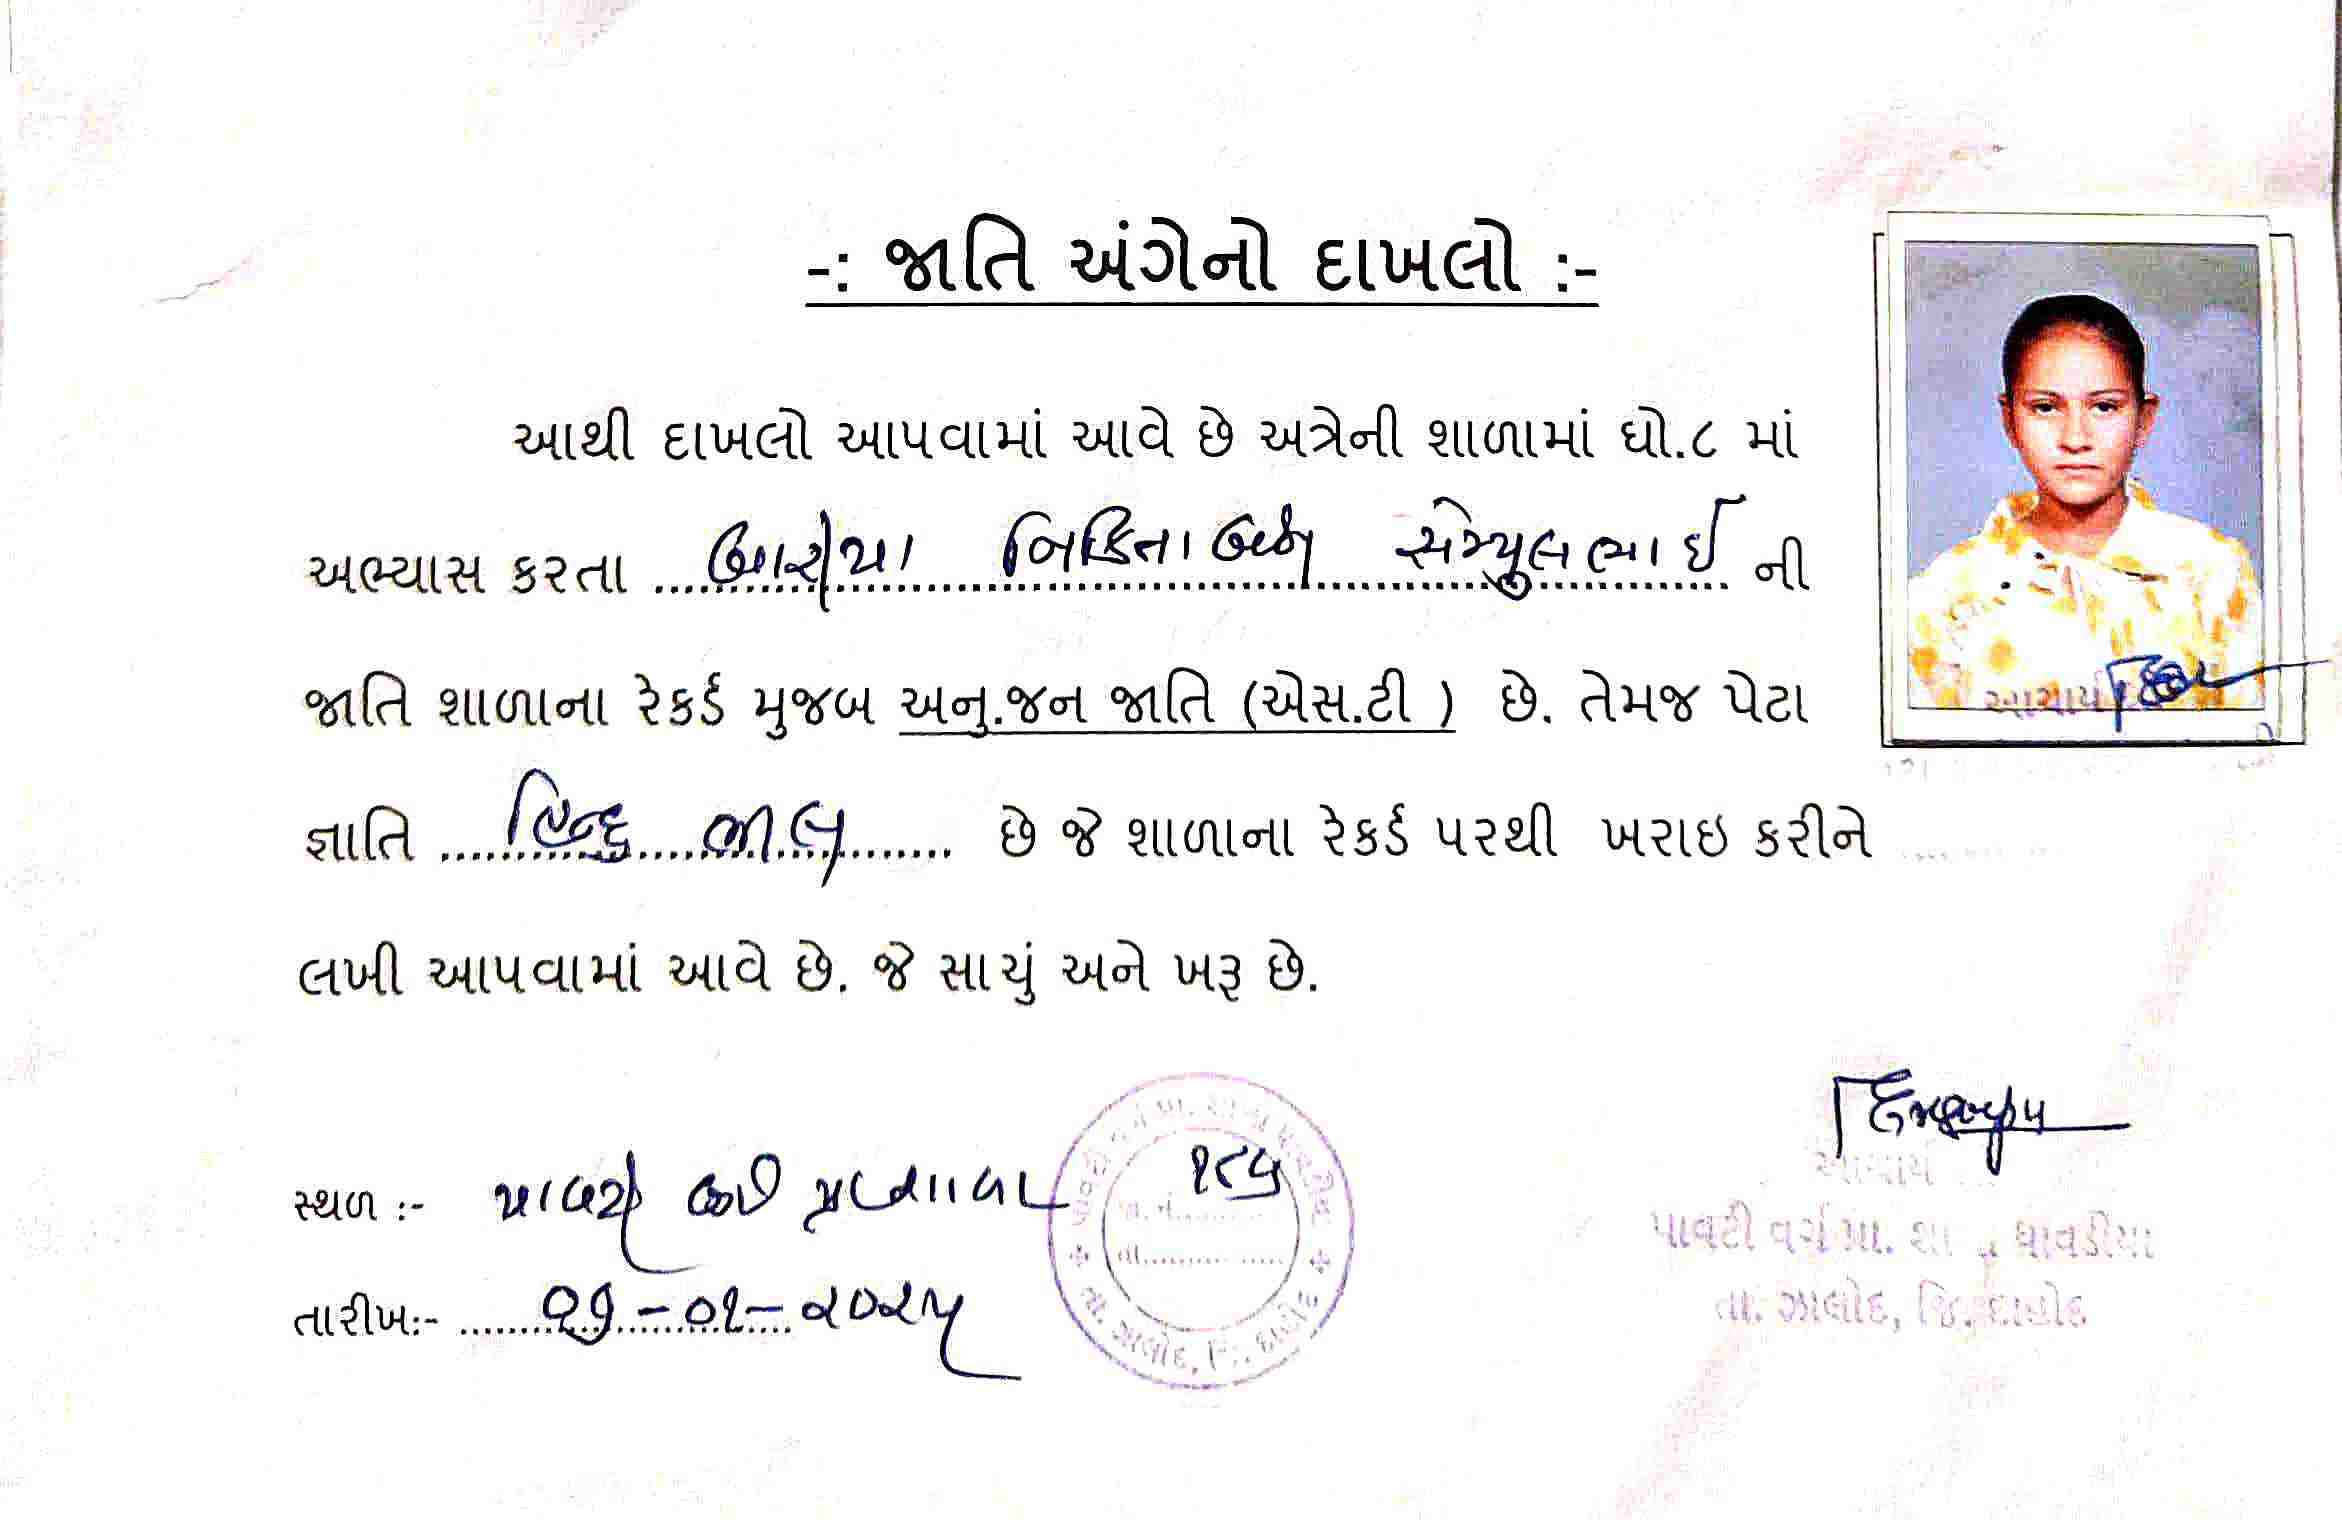 -: જાતિ અંગેનો દાખલો :-
આથી દાખલો આપવામાં આવે છે અત્રેની શાળામાં ધો.૮ માં
અભ્યાસ કરતા ........ નિકિતાબેન સેમ્યુલભાઈ ની
જાતિ શાળાના રેકર્ડ મુજબ અનુ.જન જાતિ (એસ.ટી ) છે. તેમજ પેટા
જ્ઞાતિ ....હિન્દુ ભીલ........ છે જે શાળાના રેકર્ડ પરથી ખરાઇ કરીને
લખી આપવામાં આવે છે. જે સાચું અને ખરૂ છે.
સ્થળ :- પાવટી વર્ગ
તારીખ:- ....૨૭-૦૧-૨૦૨૫
આચાર્ય
પાવટી વર્ગ પ્રા. શા
તા. ઝાલોદ, જિ. દાહોદ
આચાર્ય